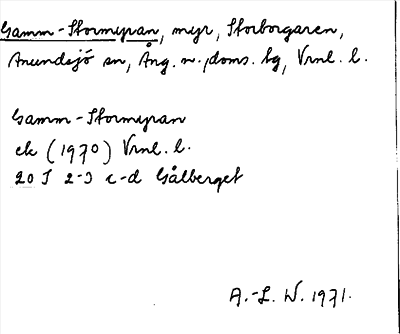 Gamm-Stormyran, myr, Storborgaren,
Anundsjö sn, Ång. n., doms. bg, Vrnl. l.
Gamm-Stormyran
ek (1970) Vrnl. l.
20 J 2-3 c-d Gålberget
A.-L. W. 1971.